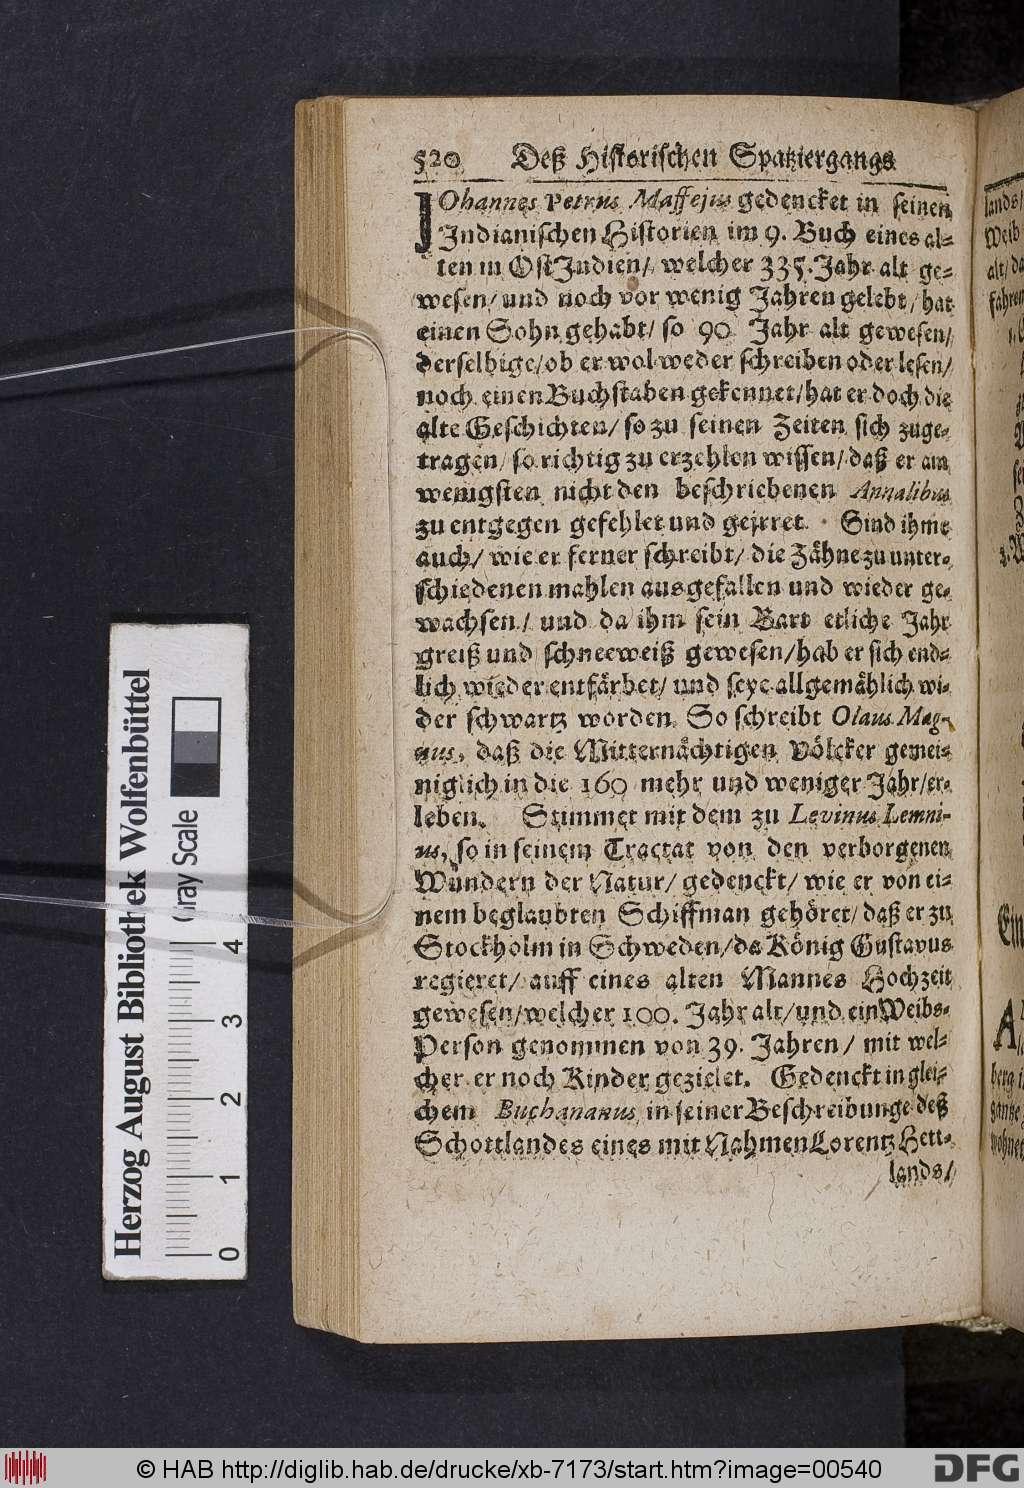 520 Deß Historischen Spatziergangs
JOhannes Petrus Maffejus gedencket in seinen
Indianischen Historien im 9. Buch eines al-
ten in Ost Indien/ welcher 335. Jahr alt ge-
wesen/ und noch vor wenig Jahren gelebt/ hat
einen Sohn gehabt/ so 90 Jahr alt gewesen/
derselbige/ ob er wol weder schreiben oder lesen/
noch einen Buchstaben gekennet/ hat er doch die
alte Geschichten/ so zu seinen Zeiten sich zuge-
tragen/ so richtig zu erzehlen wissen/ daß er am
wenigsten nicht den beschriebenen Annalibus
zu entgegen gefehlet und geirret. Sind ihme
auch/ wie er ferner schreibt/ die Zähne zu unter-
schiedenen mahlen ausgefallen und wieder ge-
wachsen/ und da ihm sein Bart etliche Jahr
greiß und schneeweiß gewesen/ hab er sich end-
lich wieder entfärbet/ und seye allgemählich wi-
der schwartz worden. So schreibt Olaus Mag-
nus, daß die Mitternächtigen Völcker gemei-
niglich in die 160 mehr und weniger Jahr/ er-
leben. Stimmet mit dem zu Levinus Lemni-
us, so in seinem Tractat von den verborgenen
Wundern der Natur/ gedenckt/ wie er von ei-
nem beglaubten Schiffman gehöret/ daß er zu
Stockholm in Schweden/ da König Gustavus
regieret/ auff eines alten Mannes Hochzeit
gewesen/ welcher 100. Jahr alt/ und ein Weibs-
Person genommen von 39. Jahren/ mit wel-
cher er noch Kinder gezielet. Gedenckt in glei-
chem Buchananus in seiner Beschreibunge deß
Schottlandes eines mit Nahmen Lorentz Hett-
lands/
lands/
Weib
alt/ da
fahren
Ein
berg i
gantze
wohnet
Herzog August Bibliothek Wolfenbüttel
Gray Scale
0 1 2 3 4
© HAB http://diglib.hab.de/drucke/xb-7173/start.htm?image=00540
DFG